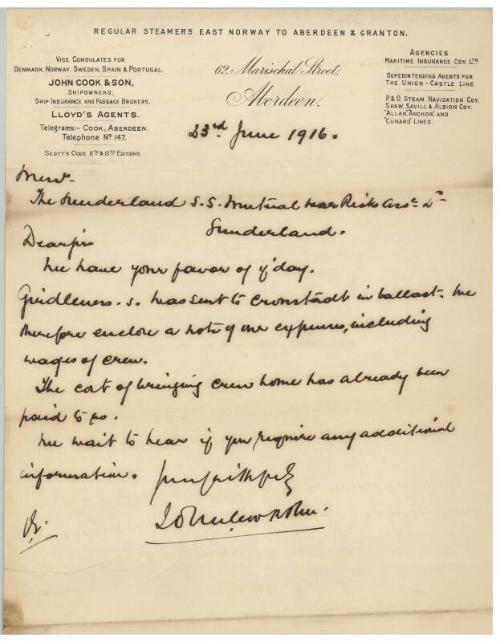 REGULAR STEAMERS EAST NORWAY TO ABERDEEN & GRANTON.
VICE CONSULATES FOR
DENMARK, NORWAY, SWEDEN, SPAIN & PORTUGAL.
JOHN COOK & SON,
SHIPOWNERS,
SHIP INSURANCE AND PASSAGE BROKERS.
LLOYD'S AGENTS.
Telegrams – COOK, ABERDEEN.
Telephone No 147.
SCOTT'S CODE 8TH & 10TH EDITIONS.
62, Marischal Street,
Aberdeen.
AGENCIES
MARITIME INSURANCE COY. LTD
SUPERINTENDING AGENTS FOR
THE UNION-CASTLE LINE
P&O. STEAM NAVIGATION COY.
SHAW, SAVILL & ALBION COY.
"ALLAN," "ANCHOR" AND
"CUNARD" LINES.
23rd June 1916.
Messrs
The Sunderland S.S. Mutual War Risk Assn Ld
Sunderland.
Dear Sir
We have your favor of y'day.
s.s. was sent to Cronstadt in ballast. We
therefore enclose a note of our expenses, including
wages of crew.
The cost of bringing crew home has already been
paid to us.
We wait to hear if you require any additional
information. Yours faithfully
John Cook & Son.